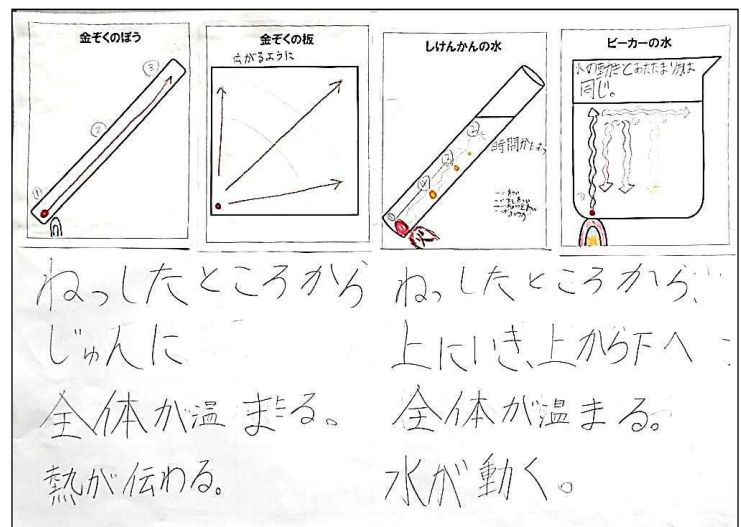 金ぞくのぼう
③
②
①
金ぞくの板
広がるように
しけんかんの水
時間がたつ
ビーカーの水
水の動きとあたたまり方は
同じ。
ねっしたところから
じゅんに
全体が温まる。
熱が伝わる。
ねっしたところから
上にいき、上から下へ
全体が温まる。
水が動く。